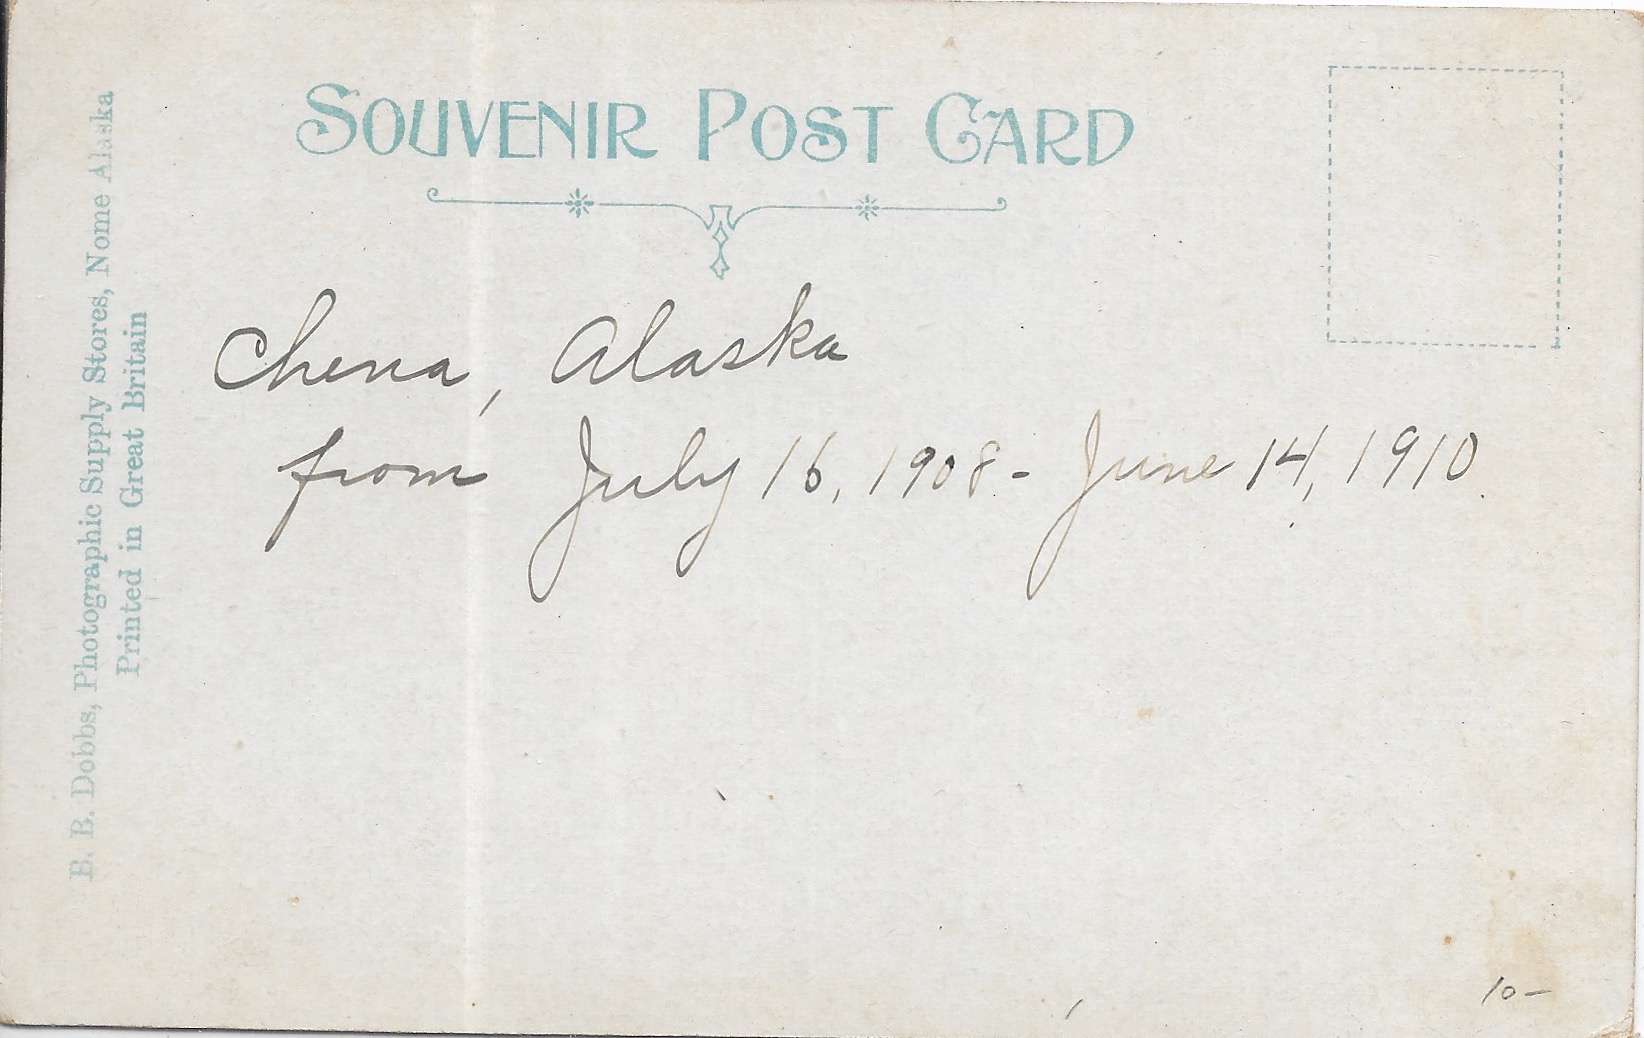 SOUVENIR POST CARD
Chena, Alaska
from July 16, 1908 - June 14, 1910.
B. B. Dobbs, Photographic Supply Stores, Nome Alaska
Printed in Great Britain
10-